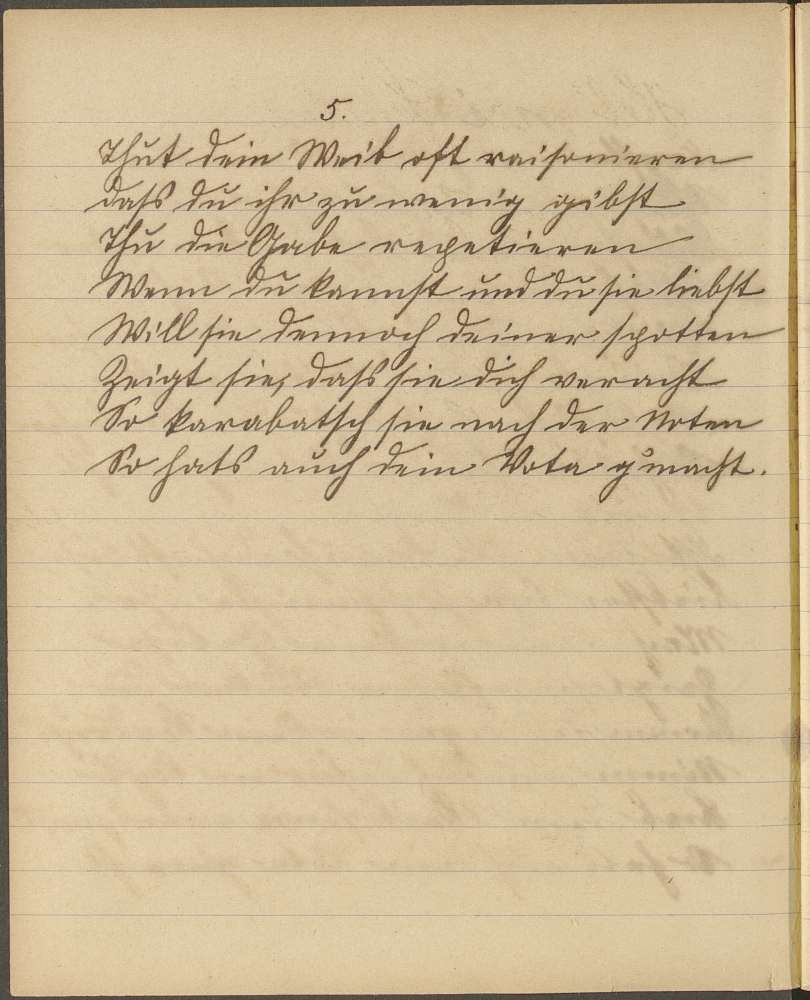 5.
Thut dein Weib oft raisonieren
dass du ihr zu wenig gibst
Thu die Gabe repetieren
Wenn du kannst und du sie liebst
Will sie dennoch deiner spotten
Zeigt sie, dass sie dich veracht
So karabatsch sie nach der Noten
So hats auch dein Vota g'macht.